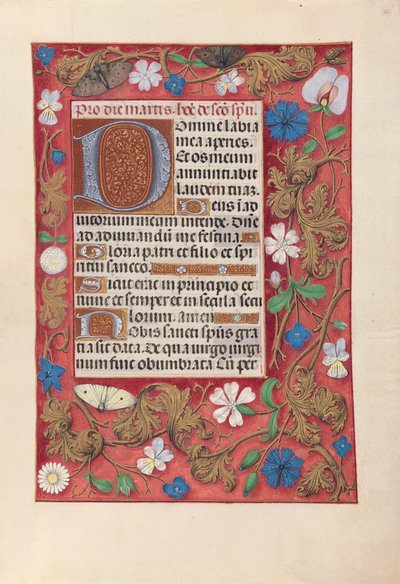 Pro die martis. hee de sco spu.
Domine labia
mea aperies.
Et os meum
annunciabit
laudem tuaz.
Deus i ad
iutorium meum intende. Dne
ad adiuuandu me festina
Gloria patri et filio et spi
ritui sancto.
Sicut erat in principio et
nunc et semper et in secula secu
lorum. amen
Nobis sancti spus gra
tia sit data. De qua uirgo uirgi
num fuit obumbrata Cu per